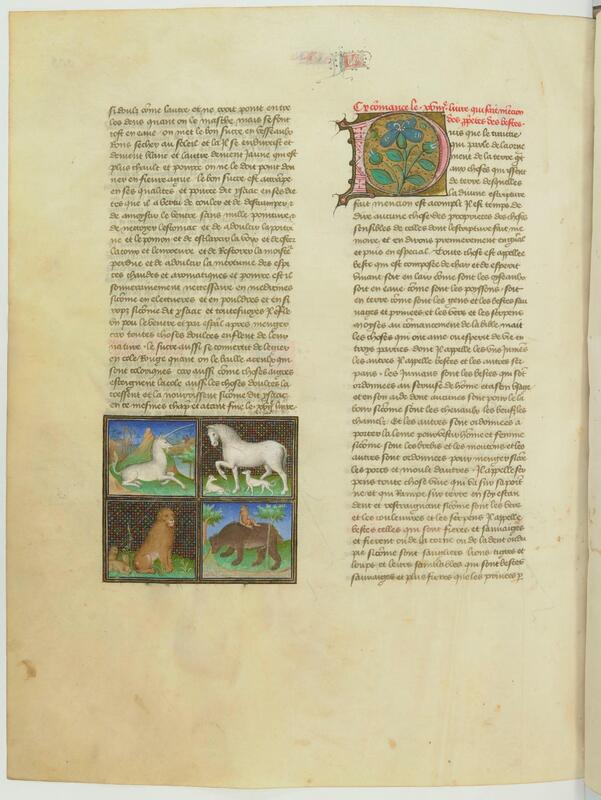 si doulz cōme lautre et ne croit point entre
les dens quant on le masche mais se font
tost en eaue on met le bon sucre en vesseaulx
pour sechier au soleil et la il se endurcist et
devient blanc et lautre devient jaune qui est
plus chault et pource on ne le doit point don
ner en fievre ague le bon sucre est attrempe
en ses qualites et pource dit ysaac en ses die
tes que il a vertu de
de amoistir le ventre sans mille pointure et
de nettoyer lestomac et de adoulcir la poitri
ne et le pomon et de esclarcir la voix et de oster
la toux et lenroueure et de restorer la moisteˡ
perdue et de adoulcir la des espi
ces chaudes et aromatiques et pource est il
souverainement necessaire en medicines
sicōme en electueres et en pouldres et en si
rops sicōme dit ysaac et toutesvoies il enfle
un pou le ventre et par espāl apres menger
car toutes choses doulces enflent de leur
nature le sucre aussi se convertit de legier
en cole rouge quant on le baille a ceulx qui
sont coleriques car aussi cōme choses aigres
estraignent la cole aussi les choses doulces la
croissent et la nourrissent sicōme dit ysaac
en ce mesmes chap̄ et a tant fine le livre
Cy cōmance le xviijᵉ livre qui fait mencion
des p̄p̄etes des bestes
Puis que le traittie
qui parle de laorne
ment de la terre qt̄
aux choses qui yssent
de terre desquelles
la divine escripture
fait mencion est acomply Il est temps de
dire aucune chose des proprietes des choses
sensibles de celles dont lescripture fait me
moire et en dirons premierement en gn̄al
et puis en especial Toute chose est appellee
beste qui est composee de char et de esperit
vivant soit en lair cōme sont les oyseaulx
soit en eaue cōme sont les poyssons soit
en terre cōme sont les gens et les bestes sau
vages et privees et les vers et les serpens
moyses au cōmancement de la bible mait
les choses qui ont ame ou esperit de vie en
troys parties dont il appelle les unes jumēs
les autres il appelle bestes et les autres ser
pens les jumens sont les bestes qui sōt
ordonnees au service de hōme et a son usage
et en son aide dont aucunes sont pour le la
bour sicōme sont les chevaulx les beufz les
chamelz Et les autres sont ordonnees a
porter la leine pour vestir hōme et femme
sicōme sont les brebis et les moutons et les
autres sont ordonnees pour menger sicōe
les porcs et moult dautres Il appelle ser
pens toute chose vive qui va sur sa poitri
ne et qui rampe sur terre en soy esten
dent et restraignant sicōme sont les vers
et les couleuvres et les serpens Il appelle
bestes celles qui sont fieres et sauvaiges
et fierent ou de la corne ou de la dent ou du
pie sicōme sont sangliers lions tigres et
loups et leurs semblables qui sont bestes
sauvaiges et plus fieres que les privees